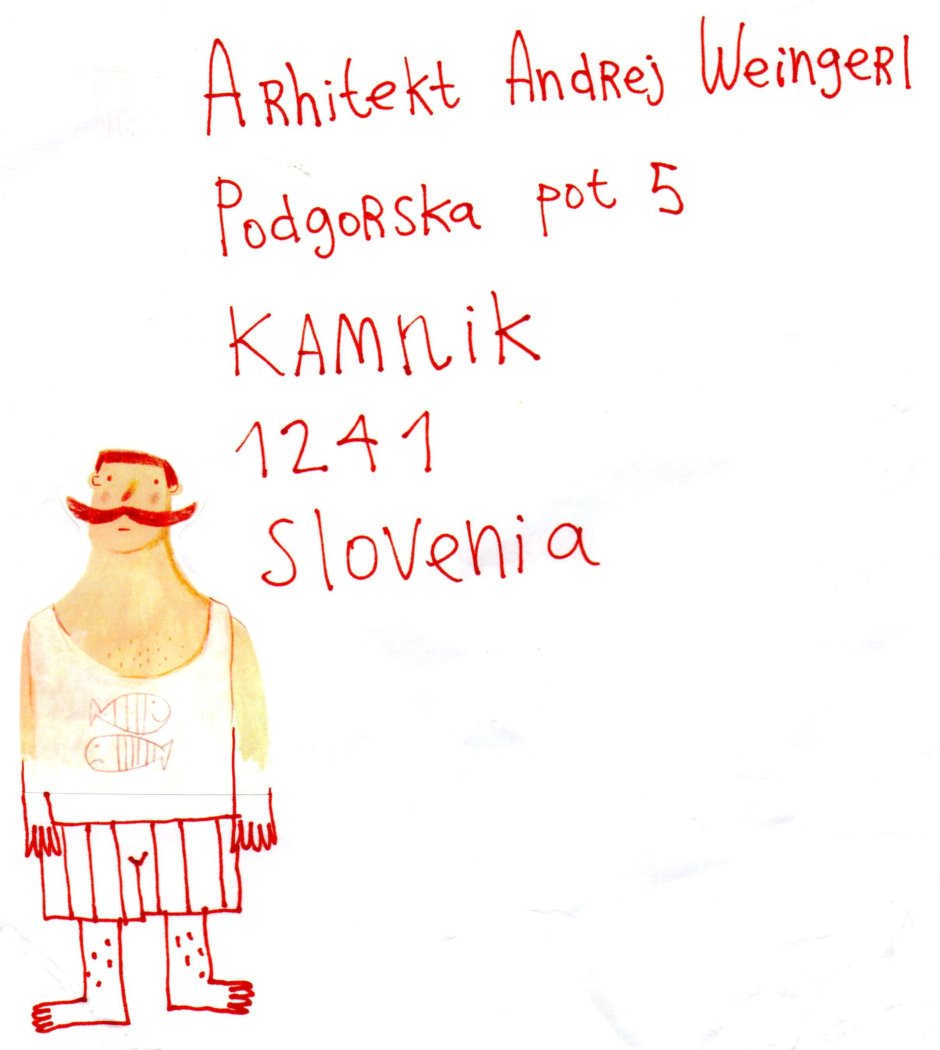 Arhitekt Andrej Weingerl
Podgorska pot 5
KAMnik
1241
Slovenia